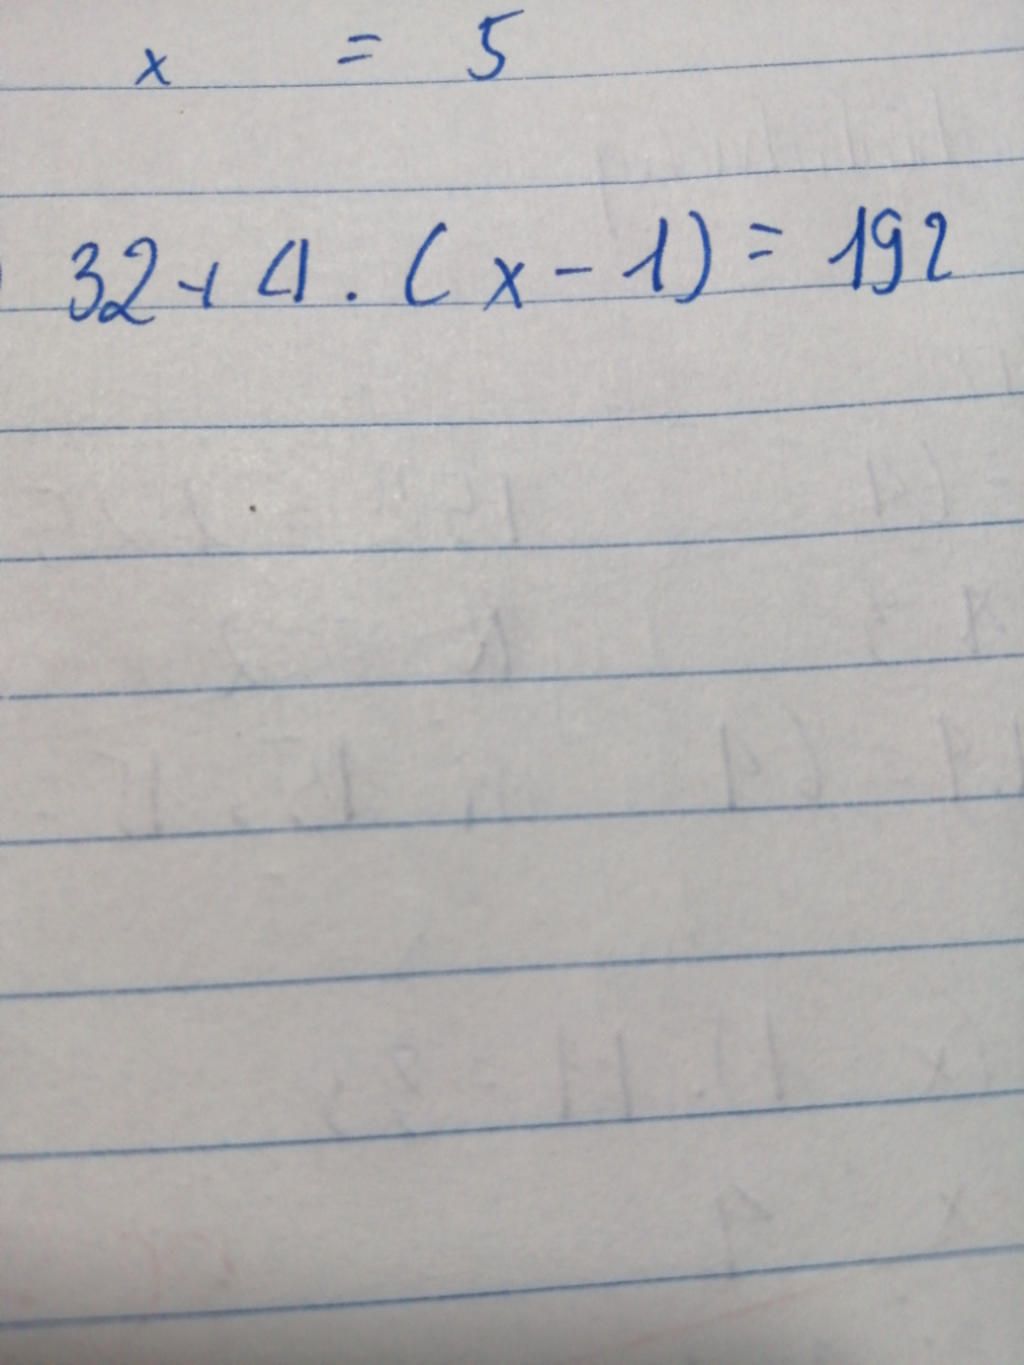 x = 5
32 + 4 . ( x - 1 ) = 192